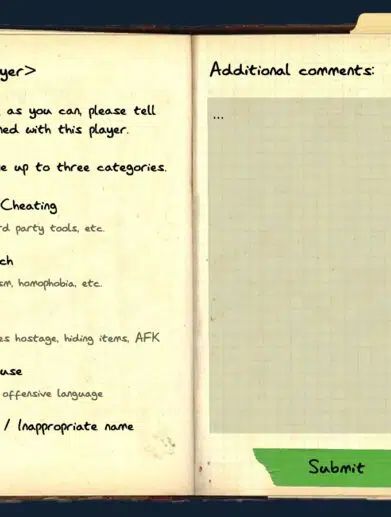 yer>
as you can, please tell
ned with this player.
e up to three categories.
Cheating
rd party tools, etc.
ch
sm, homophobia, etc.
es hostage, hiding items, AFK
use
offensive language
/ Inappropriate name
Additional comments:
...
Submit